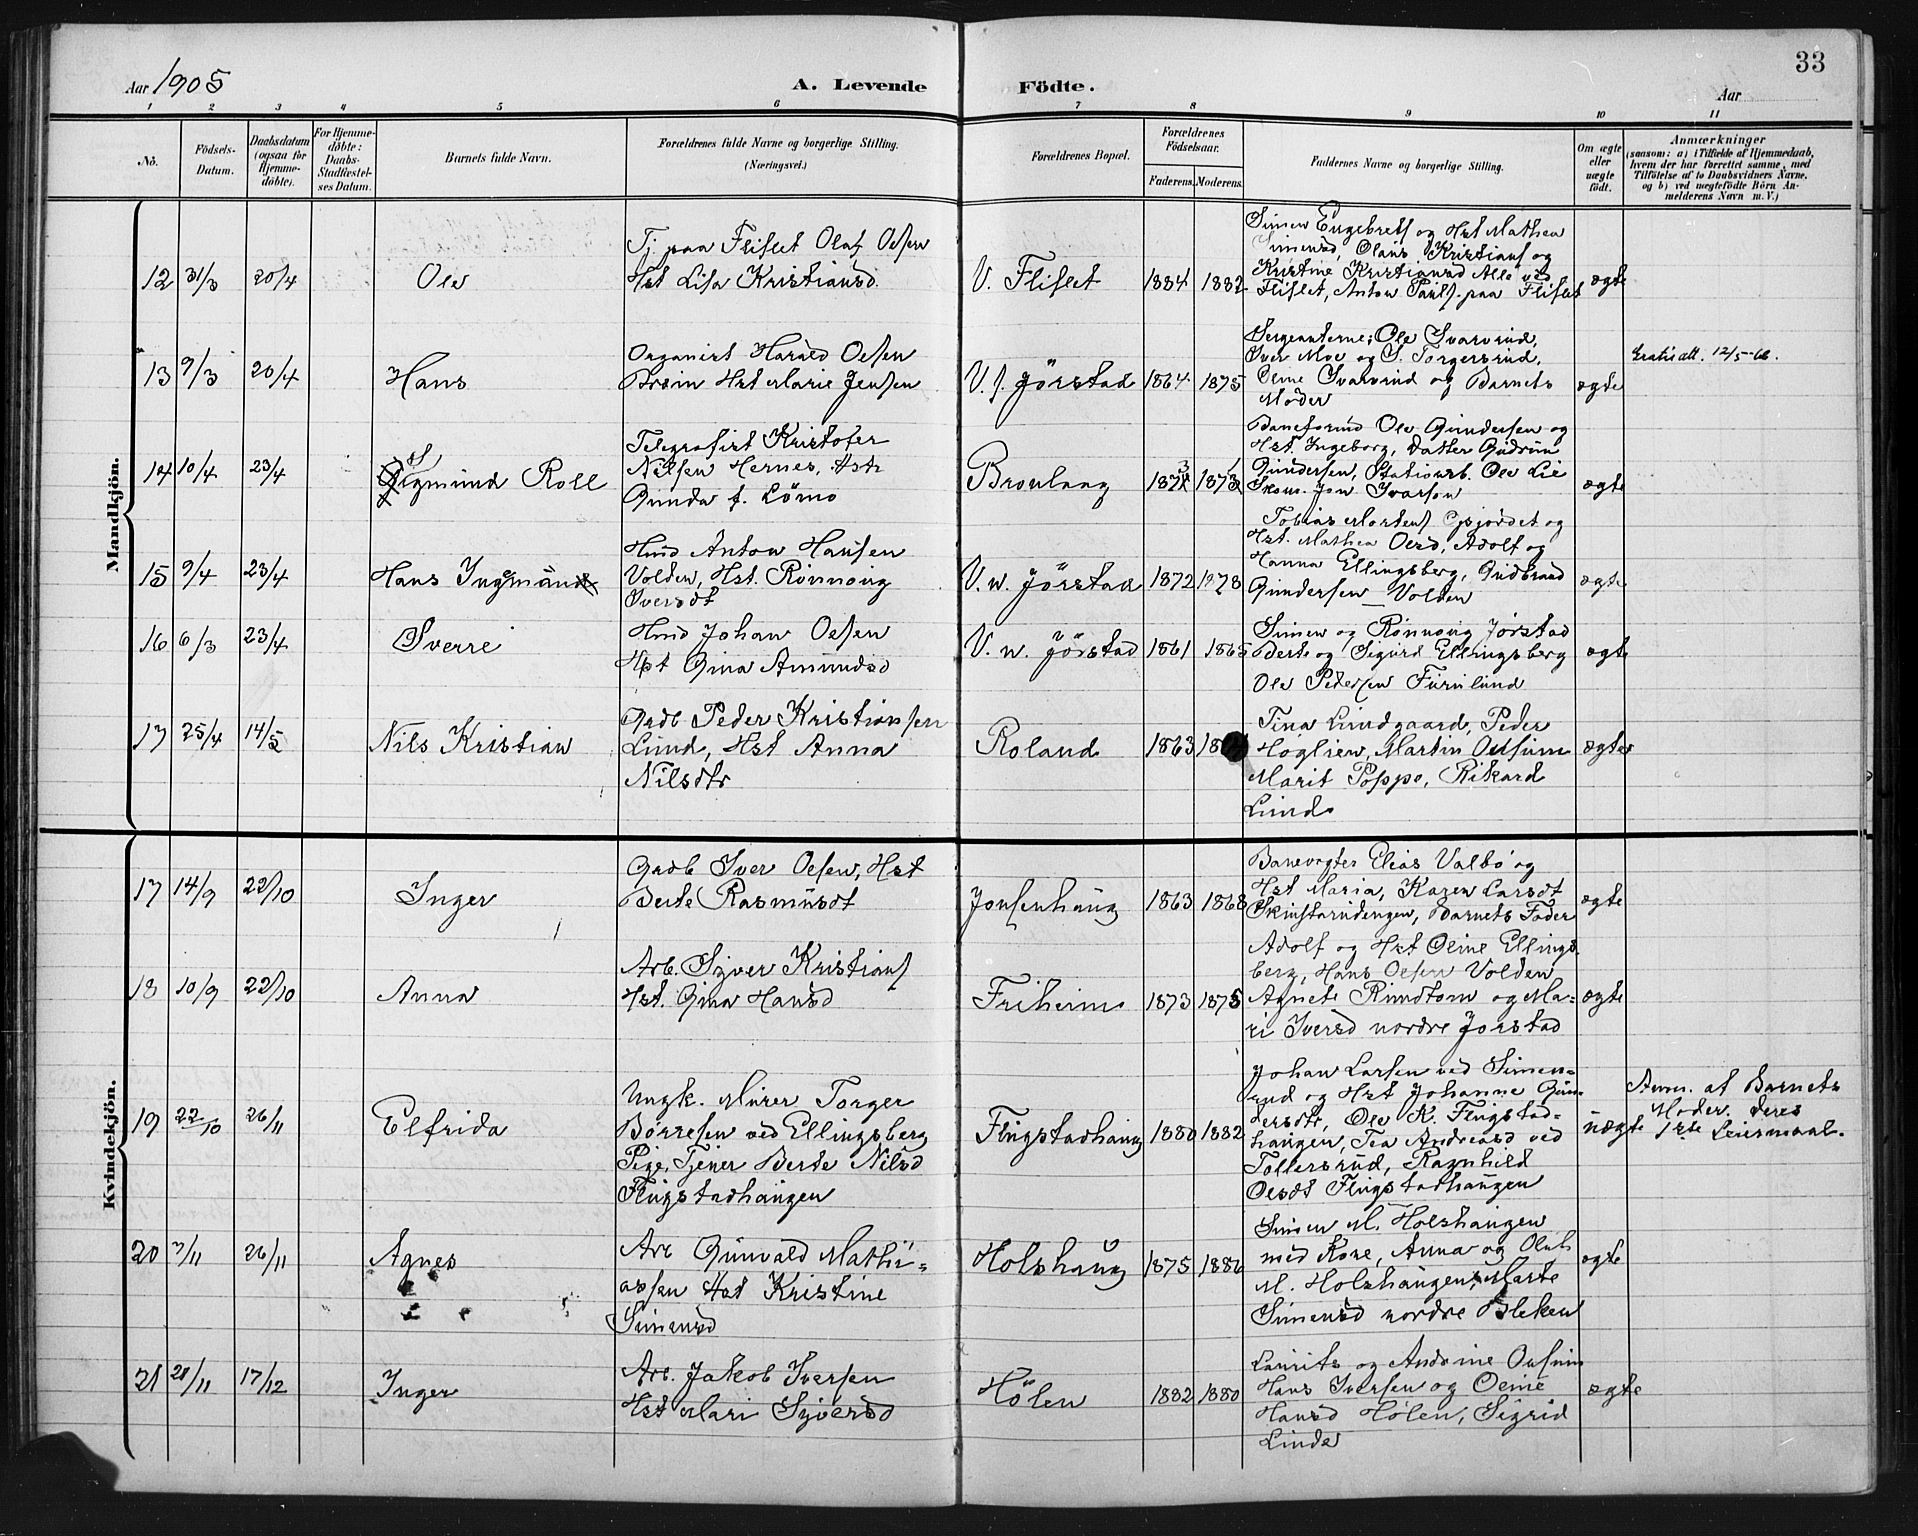 33
Aar 1905
A. Levende Födte.
Aar
1 2 3 4 5 6 7 8 9 10 11
No.
Födsels-Datum.
Daabsdatum (ogsaa for Hjemme-döbte).
For Hjemme-döbte: Daabs-Stadfæstel-ses Datum.
Barnets fulde Navn.
Forældrenes fulde Navne og borgerlige Stilling.
(Næringsvei.)
Forældrenes Bopæl.
Forældrenes Födselsaar.
Faderens. Moderens.
Faddernes Navne og borgerlige Stilling.
Om ægte eller uægte födt.
Anmærkninger
(saasom: a) i Tilfælde af Hjemmedaab,
hvem der har forrettet samme, med
Tilföielse af to Daabsvidners Navne.
og b) ved uægtefödte Börn An-
melderens Navn m. V.)
Mandkjön.
12 31/3 20/4 Ole
Tj. paa Fliflet Olaf Olsen
Hst Lisa Kristiansd.
V. Fliflet 1884 1882
Simen Engebrets og Hst Mathea
Simensd, Olaus Kristians og
Kristine Kristiansd Alle ved
Fliflet, Anton Pauls. paa Fliflet
ægte
13 9/3 20/4 Hans
Organist Harald Olsen
Broin Hst Marie Jensen
V. s. Jørstad 1864 1875
Sergeanterne: Ole Svarvrud,
Iver Moe og S. Torgersrud,
Oline Svarvrud og Barnets
Moder
ægte
12/5-
14 10/4 23/4 Sigmund Roll
Telegrafist Kristofer
Nilsen Hernes, Hst
Gunda f. Lömo
Broulaag
Ole Gundersen og
Hst. Ingeborg, Datter Gudrun
Gundersen, Ole Lie
Skom. Jon Ivarson
ægte
15 9/4 23/4 Hans Ingemund
Hmd Anton Hansen
Volden, Hst. Rönnovig
Iversdt
V. w. Jørstad 1872 1878
Tobias Mortens Opsjordet og
Hst. Mathea Olsd, Adolf og
Hanna Ellingsberg, Gudbrand
Gundersen Volden
ægte
16 6/3 23/4 Sverre
Hmd Johan Olsen
Hst Gina Amundsd
V. w. Jørstad 1861 1865
Simen og Rønnovig Jörstad
Berte og Sigurd Ellingsberg
Ole Pedersen Furulund
ægte
17 25/4 14/5 Nils Kristian
Grdb Peder Kristiansen
Lund, Hst Anna
Nilsdtr
Roland 1863
Tina Lundgaard, Peder
Höglien, Martin Ousum
Marit Poppe, Rikard
Lund
ægte
Kvindekjön.
17 14/9 22/10 Inger
Grdb Iver Olsen, Hst
Berte Rasmusdt
Jonsenhaug 1863 1868
Banevogter Elias Valbö og
Hst Maria, Karen Larsdt
Skinstarudengen, Barnets Fader
ægte
18 10/9 22/10 Anna
Arb. Syver Kristians
Hst. Gina Hansd
Friheim 1873 1875
Adolf og Hst Oline Ellings
berg, Hans Olsen Volden
Agnete Rindtom og Ma=
ri Iversd nordre Jorstad
ægte
19 22/10 26/11 Elfrida
Ungk. Murer Torger
Börresen ved Ellingsberg
Pige, Tjener Berte Nilsd
Flugstadhaugen
Flugstadhaug 1880 1882
Johan Larsen ved Simen=
rud og Hst Johanne Gun=
dersdtr, Ole K. Flugstad=
haugen, Tea Andreasd ved
Tollersrud, Ragnhild
Olsdt Flugstadhaugen
uægte
Anm. af Barnets
Moder. deres
1ste Leiermaal.
20 3/11 26/11 Agnes
Arb Gunvald Mathi=
assen Hst Kristine
Simensd
Holshaug 1875 1886
Simen M. Holshaugen
med Kone, Anna og Oluf
M. Holshaugen, Marte
Simensd nordre Bleken
ægte
21 21/11 17/12 Inger
Arb. Jakob Iversen
Hst Mari Syversd
Hölen 1882 1880
Laurits og Andrine Ousum
Hans Iversen og Oline
Hansd Hölen, Sigrid
Linde
ægte